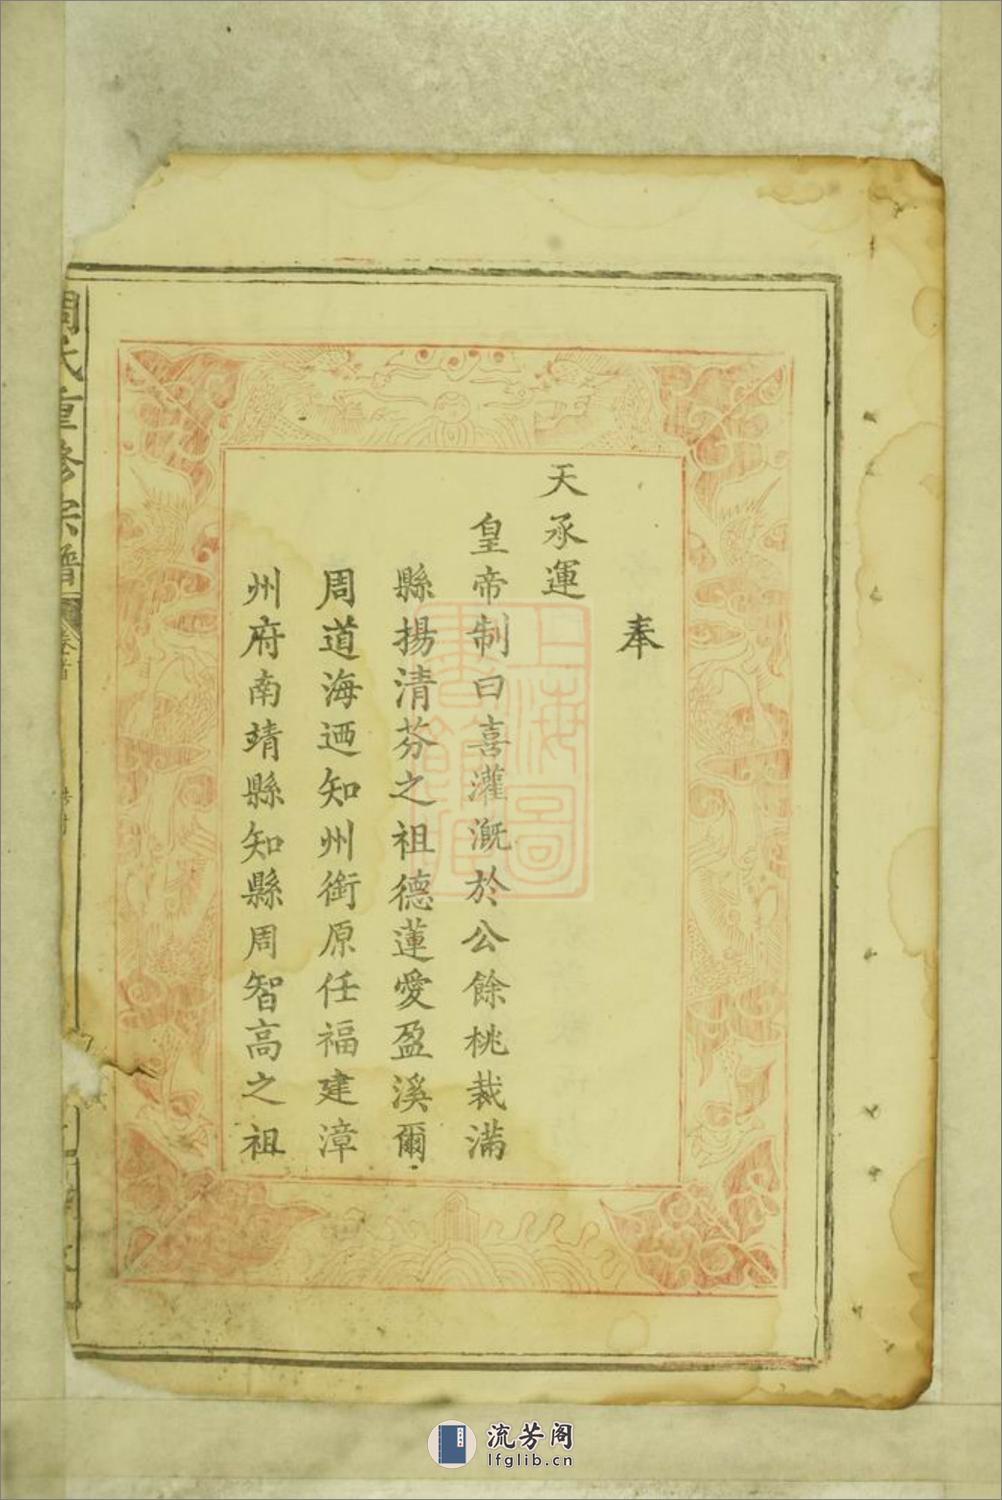 奉
天承運
皇帝制曰喜灌溉於公餘桃栽滿
縣揚清芬之祖德蓮愛盈溪爾
周道海迺知州銜原任福建漳
州府南靖縣知縣周智高之祖
周氏重修宗譜
卷首
上海圖書館藏
流芳阁
lfglib.cn